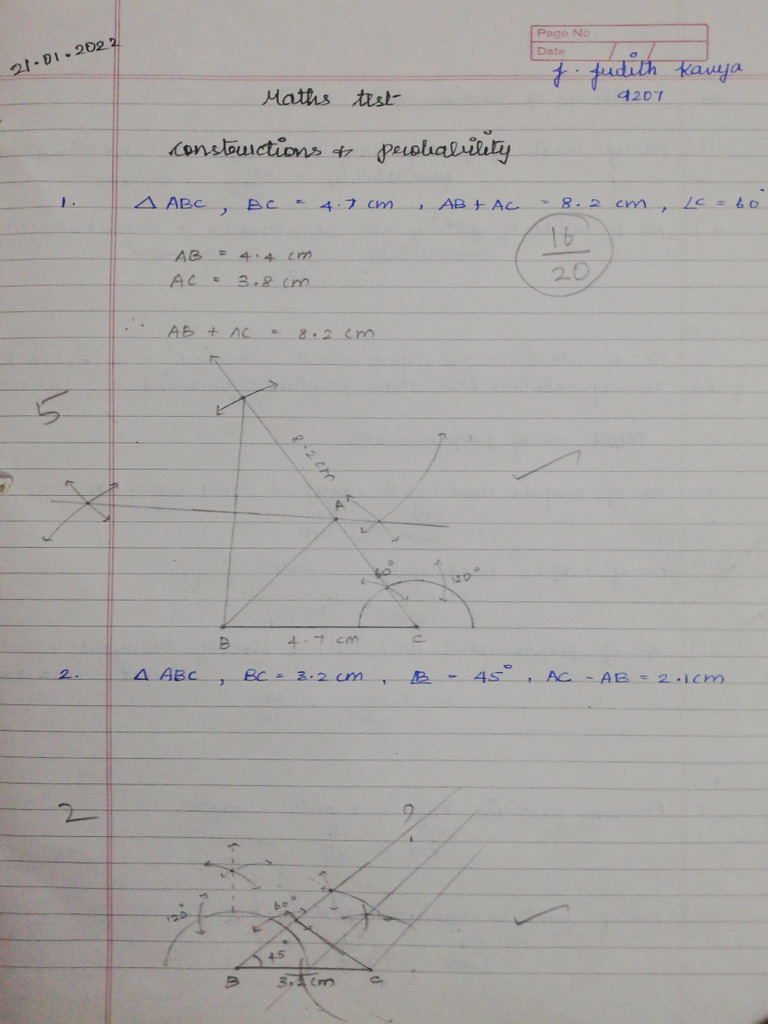 21.01.2022
Page No
Date
J. Judith Kavya
9207
Maths test
Constructions & probability
1. △ ABC, BC = 4.7 cm, AB + AC = 8.2 cm, ∠C = 60°
16
20
AB = 4.4 cm
AC = 3.8 cm
∴ AB + AC = 8.2 cm
5
8.2 cm
A
60°
120°
B 4.7 cm C
2. △ ABC, BC = 3.2 cm, ∠B = 45°, AC - AB = 2.1cm
2
?
120°
60°
45°
B 3.2 cm C